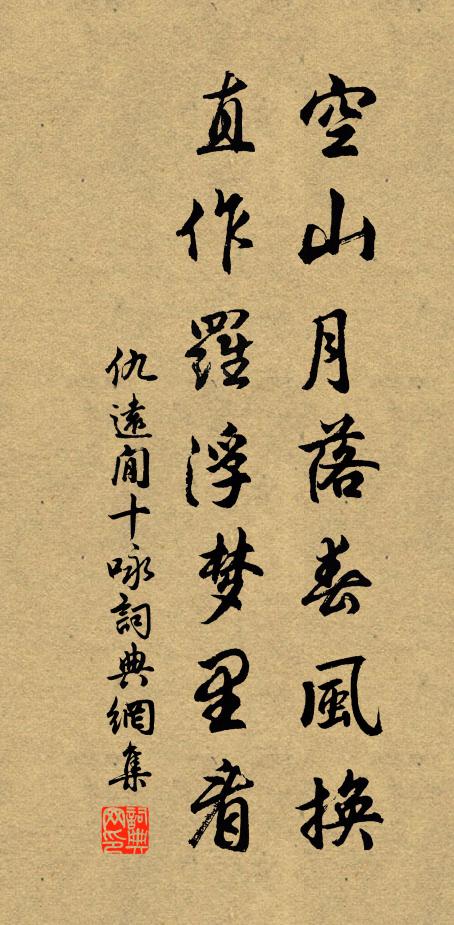 空山月落春風換
直作羅浮梦里看
仇遠閒十咏詞典網集
詞典网印